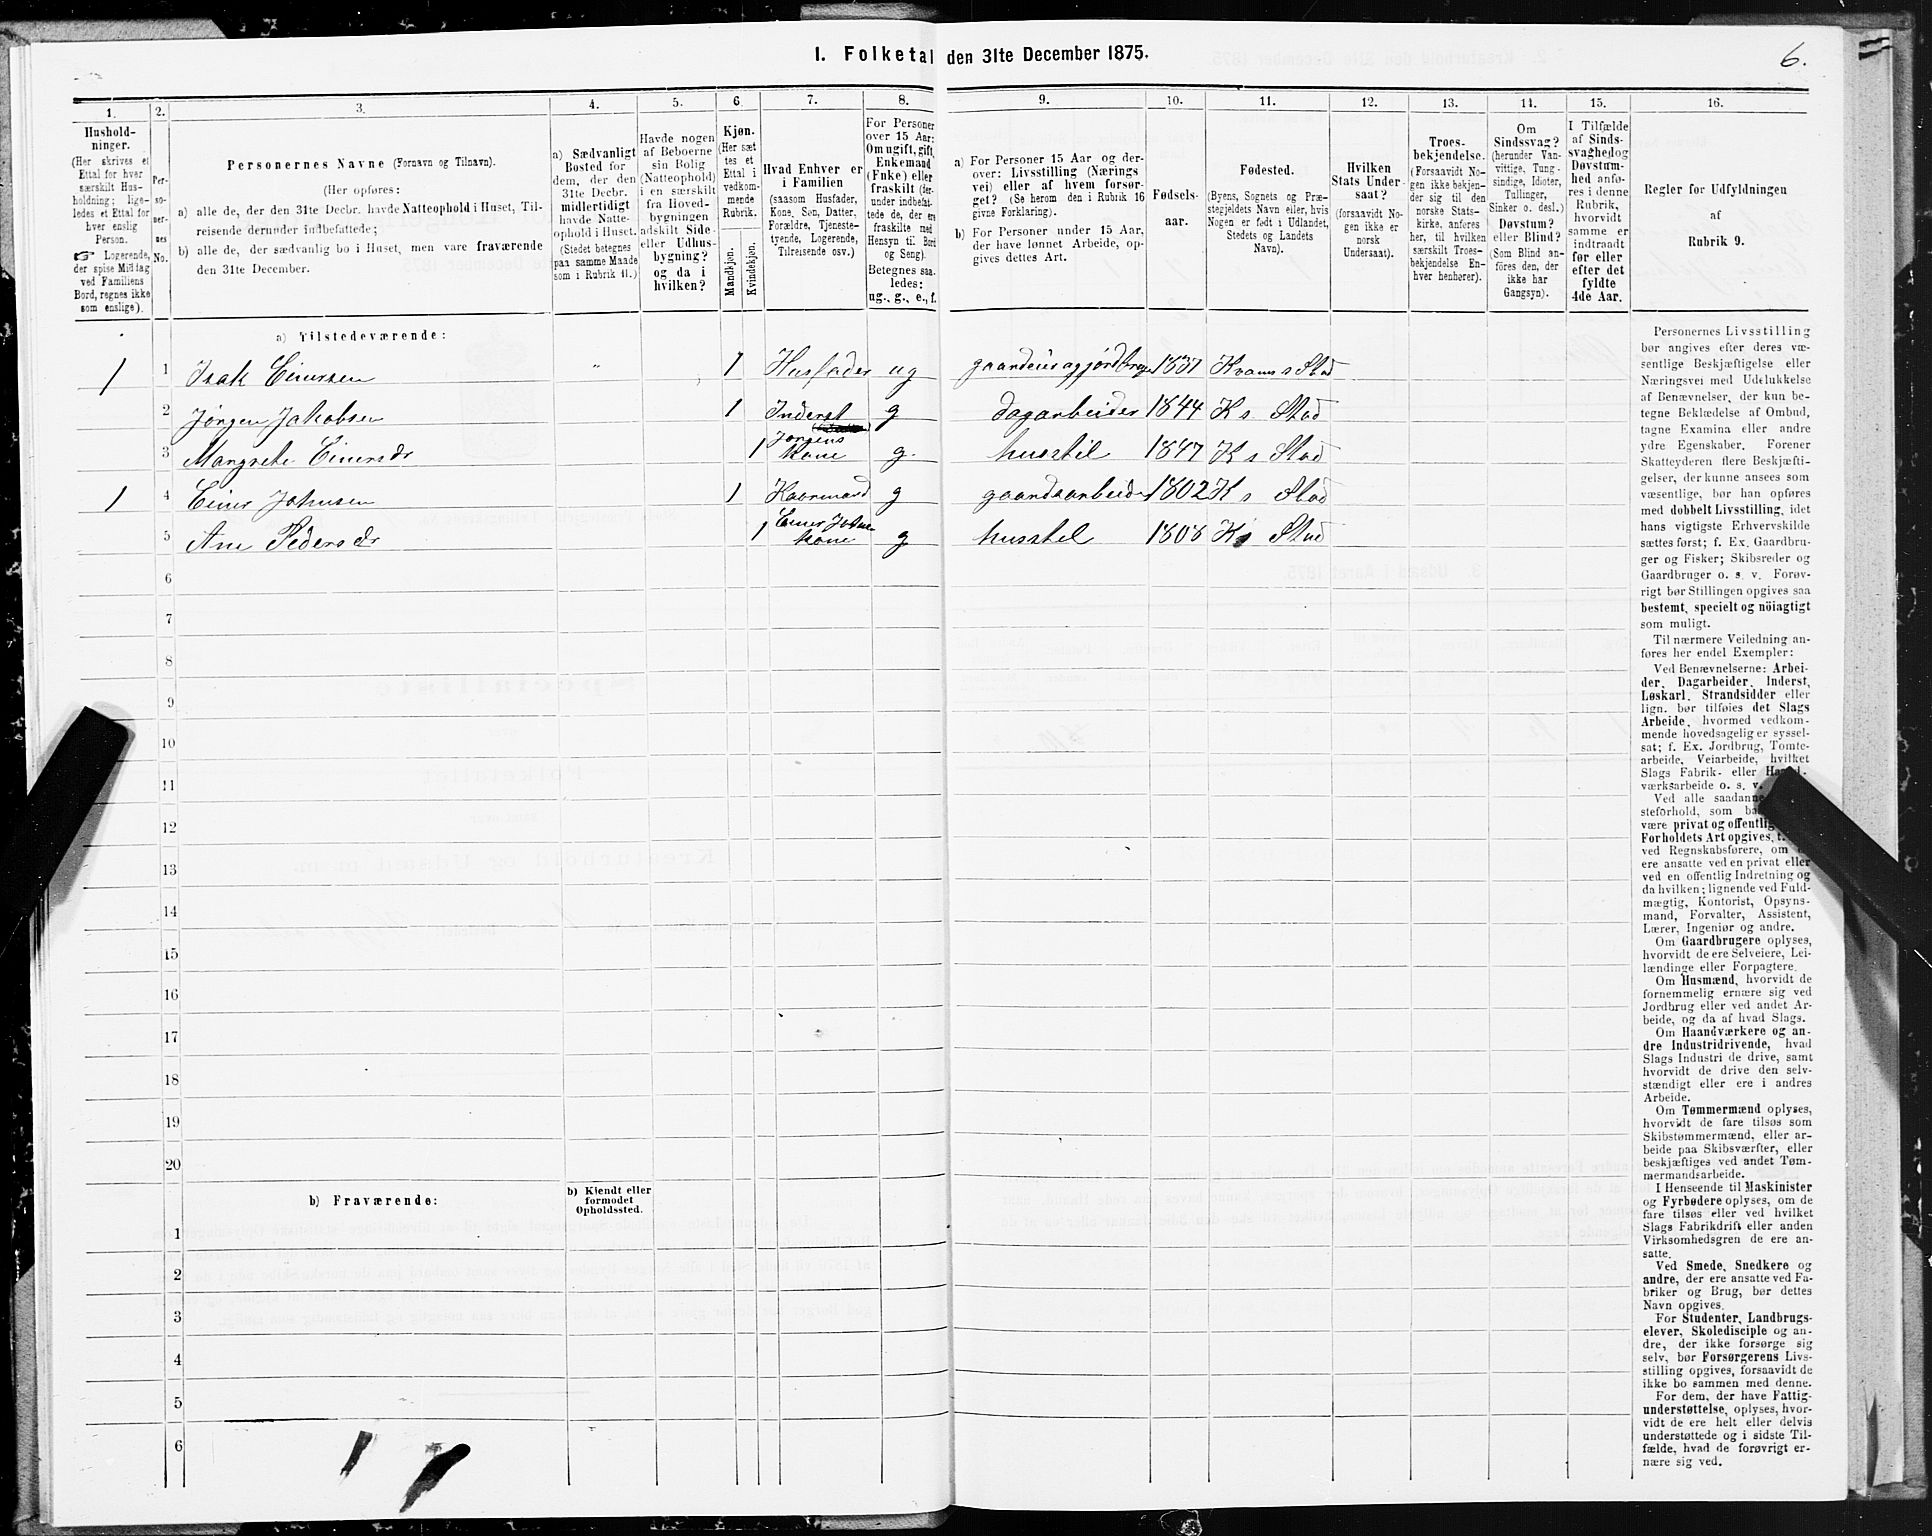 I. Folketal den 31te December 1875.
6.
1.
2.
3.
4.
5.
6.
7.
8.
9.
10.
11.
12.
13.
14.
15.
16.
Hushold-
ninger.
(Her skrives et
Ettal for hver
særskilt Hus-
holdning; lige-
ledes et Ettal for
hver enslig
Person.
☞ Logerende,
der spise Middag
ved Familiens
Bord, regnes ikke
som enslige).
Per-
so-
ner-
nes
No.
Personernes Navne (Fornavn og Tilnavn).
(Her opføres:
a) alle de, der den 31te Decbr. havde Natteophold i Huset, Til-
reisende derunder indbefattede;
b) alle de, der sædvanlig bo i Huset, men vare fraværende
den 31te December.
a) Sædvanligt
Bosted for
dem, der den
31te Decbr.
midlertidigt
havde Natte-
ophold i Huset.
(Stedet betegnes
paa samme Maade
som i Rubrik 11.)
Havde nogen
af Beboerne
sin Bolig
(Natteophold)
i en særskilt
fra Hoved-
bygningen
adskilt Side-
eller Udhus-
bygning?
og da i
hvilken?
Kjøn.
(Her sæt
tes et
Ettal i
vedkom-
mende
Rubrik.
Mandkjøn.
Kvindekjøn.
Hvad Enhver er
i Familien
(saasom Husfader,
Kone, Søn, Datter,
Forældre, Tjeneste-
tyende, Logerende,
Tilreisende osv.)
For Personer
over 15 Aar:
Om ugift, gift,
Enkemand
(Enke) eller
fraskilt (der-
under indbefat-
tede de, der ere
fraskilte med
Hensyn til Bord
og Seng).
Betegnes saa-
ledes:
ug., g., e., f.
a) For Personer 15 Aar og der-
over: Livsstilling (Nærings
vei) eller af hvem forsør-
get? (Se herom den i Rubrik 16
givne Forklaring).
b) For Personer under 15 Aar,
der have lønnet Arbeide, op-
gives dettes Art.
Fødsels-
aar.
Fødested.
(Byens, Sognets og Præ-
stegjeldets Navn eller, hvis
Nogen er født i Udlandet,
Stedets og Landets
Navn).
Hvilken
Stats Under-
saat?
(forsaavidt No-
gen ikke er
norsk
Undersaat).
Troes-
bekjendelse.
(Forsaavidt No-
gen ikke bekjen-
der sig til den
norske Stats-
kirke, anføres
her, til hvilken
særskilt Troes-
bekjendelse En-
hver henhører).
Om
Sindssvag?
(herunder Van-
vittige, Tung-
sindige, Idioter,
Tullinger,
Sinker o. desl.)
Døvstum?
eller Blind?
(Som Blind an-
føres den, der
ikke har
Gangsyn).
I Tilfælde
af Sinds-
svaghed og
Døvstum-
hed anfø-
res i denne
Rubrik,
hvorvidt
samme er
indtraadt
før eller
efter det
fyldte
4de Aar.
Regler før Udfyldningen
af
Rubrik 9.
a) Tilstedeværende:
1 1 Isak Einersen " 1 Husfader ug gaardeier og jordbruger 1837 Kvams Stod
2 Jørgen Jakobsen 1 Inderst g dagarbeider 1844 K s Stod
3 Margrete Einersdr 1 Jørgens Kone g. husstel 1847 K s Stod
1 4 Einer Johnsen 1 Kaarmand g gaardsarbeider 1802 K s Stod
5 Ane Pedersdr 1 Einer Johns Kone g husstel 1808 K s Stod
6
7
8
9
10
11
12
13
14
15
16
17
18
19
20
b) Fraværende:
b) Kjendt eller
formodet
Opholdssted.
1
2
3
4
5
6
Personernes Livsstilling
bør angives efter deres væ-
sentlige Beskjæftigelse eller
Næringsvei med Udelukkelse
af Benævnelser, der kun be-
tegne Beklædelse af Ombud,
tagne Examina eller andre
ydre Egenskaber. Forener
Skatteyderen flere Beskjæfti-
gelser, der kunne ansees som
væsentlige, bør han opføres
med dobbelt Livsstilling, idet
hans vigtigste Erhvervskilde
sættes først; f. Ex. Gaardbru-
ger og Fisker; Skibsreder og
Gaardbruger o. s. v. Forøv-
rigt bør Stillingen opgives saa
bestemt, specielt og nöiagtigt
som muligt.
Til nærmere Veiledning an-
føres her endel Exempler:
Ved Benævnelserne: Arbei-
der, Dagarbeider, Inderst,
Løskarl, Strandsidder eller
lign. bør tilføies det Slags
Arbeide, hvormed vedkom-
mende hovedsagelig er syssel-
sat; f. Ex. Jordbrug, Tomte-
arbeide, Veiarbeide, hvilket
Slags Fabrik- eller
værksarbeide o. s. v.
Ved alle saadanne
steforhold, som
være privat og offentlig
Forholdets Art opgives,
ved Regnskabsførere, om
ere ansatte ved en privat eller
ved en offentlig Indretning og
da hvilken; lignende ved Fuld-
mægtig, Kontorist, Opsyns-
mand, Forvalter, Assistent,
Lærer, Ingeniør og andre.
Om Gaardbrugere oplyses,
hvorvidt de ere Selveiere, Lei-
lændinge eller Forpagtere.
Om Husmænd, hvorvidt de
fornemmelig ernære sig ved
Jordbrug eller ved andet Ar-
beide, og da af hvad Slags.
Om Haandværkere og an-
dre Industridrivende, hvad
Slags Industri de drive, samt
hvorvidt de drive den selv-
stændigt eller ere i andres
Arbeide.
Om Tømmermænd oplyses,
hvorvidt de fare tilsøs som
Skibstømmermænd, eller ar-
beide paa Skibsværfter, eller
beskjæftiges ved andet Tøm-
mermandsarbeide.
I Henseende til Maskinister
og Fyrbødere oplyses, om de
fare tilsøs eller ved hvilket
Slags Fabrikdrift eller anden
Virksomhedsgren de ere an-
satte.
Ved Smede, Snedkere og
andre, der ere ansatte ved Fa-
briker og Brug, bør dettes
Navn opgives.
For Studenter, Landbrugs-
elever, Skoledisciple og an-
dre, der ikke forsørge sig
selv, bør Forsørgerens Livs-
stilling opgives, forsaavidt de
ikke bo sammen med denne.
For dem, der have Fattig-
understøttelse, oplyses, hvor-
vidt de ere helt eller delvis
understøttede og i sidste Til-
fælde, hvad de forøvrigt er-
nære sig ved.